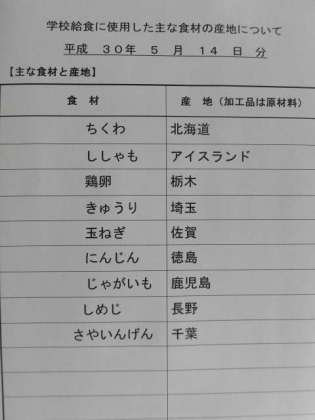 学校給食に使用した主な食材の産地について
平成 30年 5 月 14 日 分
【主な食材と産地】
食 材 産 地（加工品は原材料）
ちくわ 北海道
ししゃも アイスランド
鶏卵 栃木
きゅうり 埼玉
玉ねぎ 佐賀
にんじん 徳島
じゃがいも 鹿児島
しめじ 長野
さやいんげん 千葉